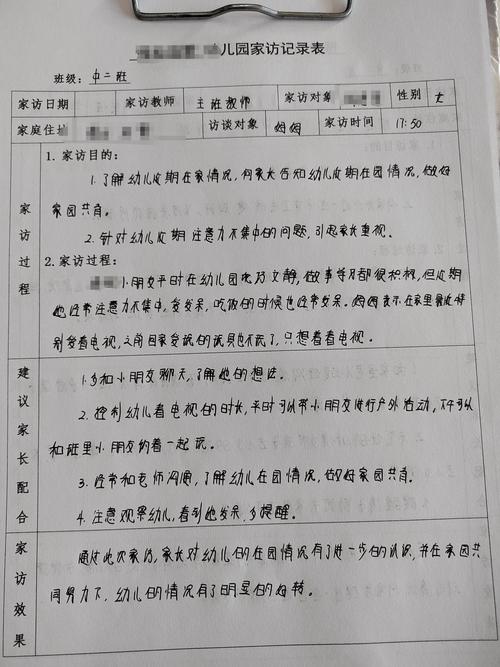 儿园家访记录表
班级：中二班
家访日期 家访教师 主班教师 家访对象 性别 女
家庭住址 访谈对象 妈妈 家访时间 17:50
家访过程
1. 家访目的：
1. 了解幼儿近期在家情况，向家长告知幼儿近期在园情况，做好
家园共育。
2. 针对幼儿近期注意力不集中的问题，引起家长重视。
2. 家访过程：
小朋友平时在幼儿园比较文静，做事学习都很积极，但近期
她经常注意力不集中，爱发呆，吃饭的时候也经常发呆。妈妈表示在家里最近特
别爱看电视，之前回家爱玩的玩具也不玩了，只想着看电视。
建议家长配合
1. 多和小朋友聊天，了解她的想法。
2. 控制幼儿看电视的时长，平时可以带小朋友进行户外活动，下午可以
和班里小朋友约着一起玩。
3. 经常和老师沟通，了解幼儿在园情况，做好家园共育。
4. 注意观察幼儿，看到她发呆，多提醒。
家访效果
通过此次家访，家长对幼儿的在园情况有了进一步的认识，并在家园共
同努力下，幼儿的情况有了明显的好转。